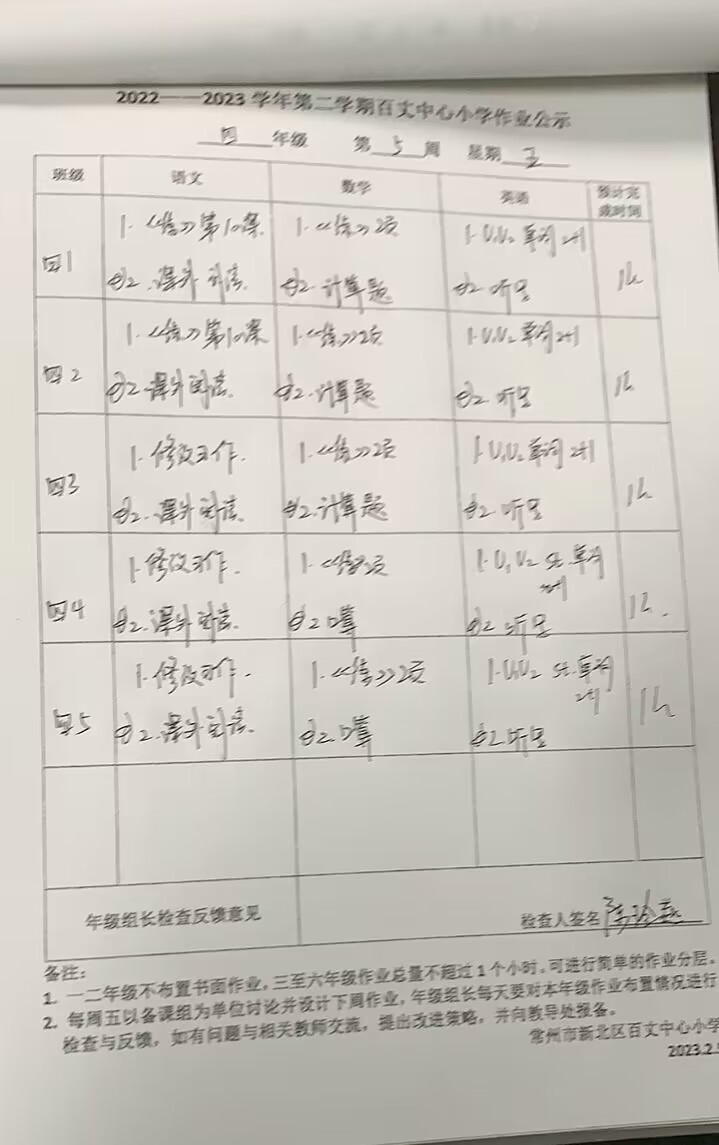 2022——2023学年第二学期百丈中心小学作业公示
四 年级 第 5 周 星期 五
班级 语文 数学 英语 预计完成时间
四1 1.《练》第10课. 1.《练》2页 1.U1U2 单词 2+1 1h
2.课外阅读. 2.计算题 2.听呈
四2 1.《练》第10课 1.《练》2页 1.U1U2 单词 2+1 1h
2.课外阅读. 2.计算题 2.听呈
四3 1.修改习作. 1.《练》2页 1.U1U2 单词 2+1 1h
2.课外阅读. 2.计算题 2.听呈
四4 1.修改习作. 1.《练》2页 1.U1U2 单词 2+1 1h.
2.课外阅读. 2.口算 2.听呈
四5 1.修改习作. 1.《练》2页 1.U1U2 单词 2+1 1h
2.课外阅读. 2.口算 2.听呈
年级组长检查反馈意见 检查人签名
备注:
1. 一二年级不布置书面作业,三至六年级作业总量不超过1个小时,可进行简单的作业分层。
2. 每周五以备课组为单位讨论并设计下周作业,年级组长每天要对本年级作业布置情况进行
检查与反馈,如有问题与相关教师交流,提出改进策略,并向教导处报备。
常州市新北区百丈中心小学
2023.2.